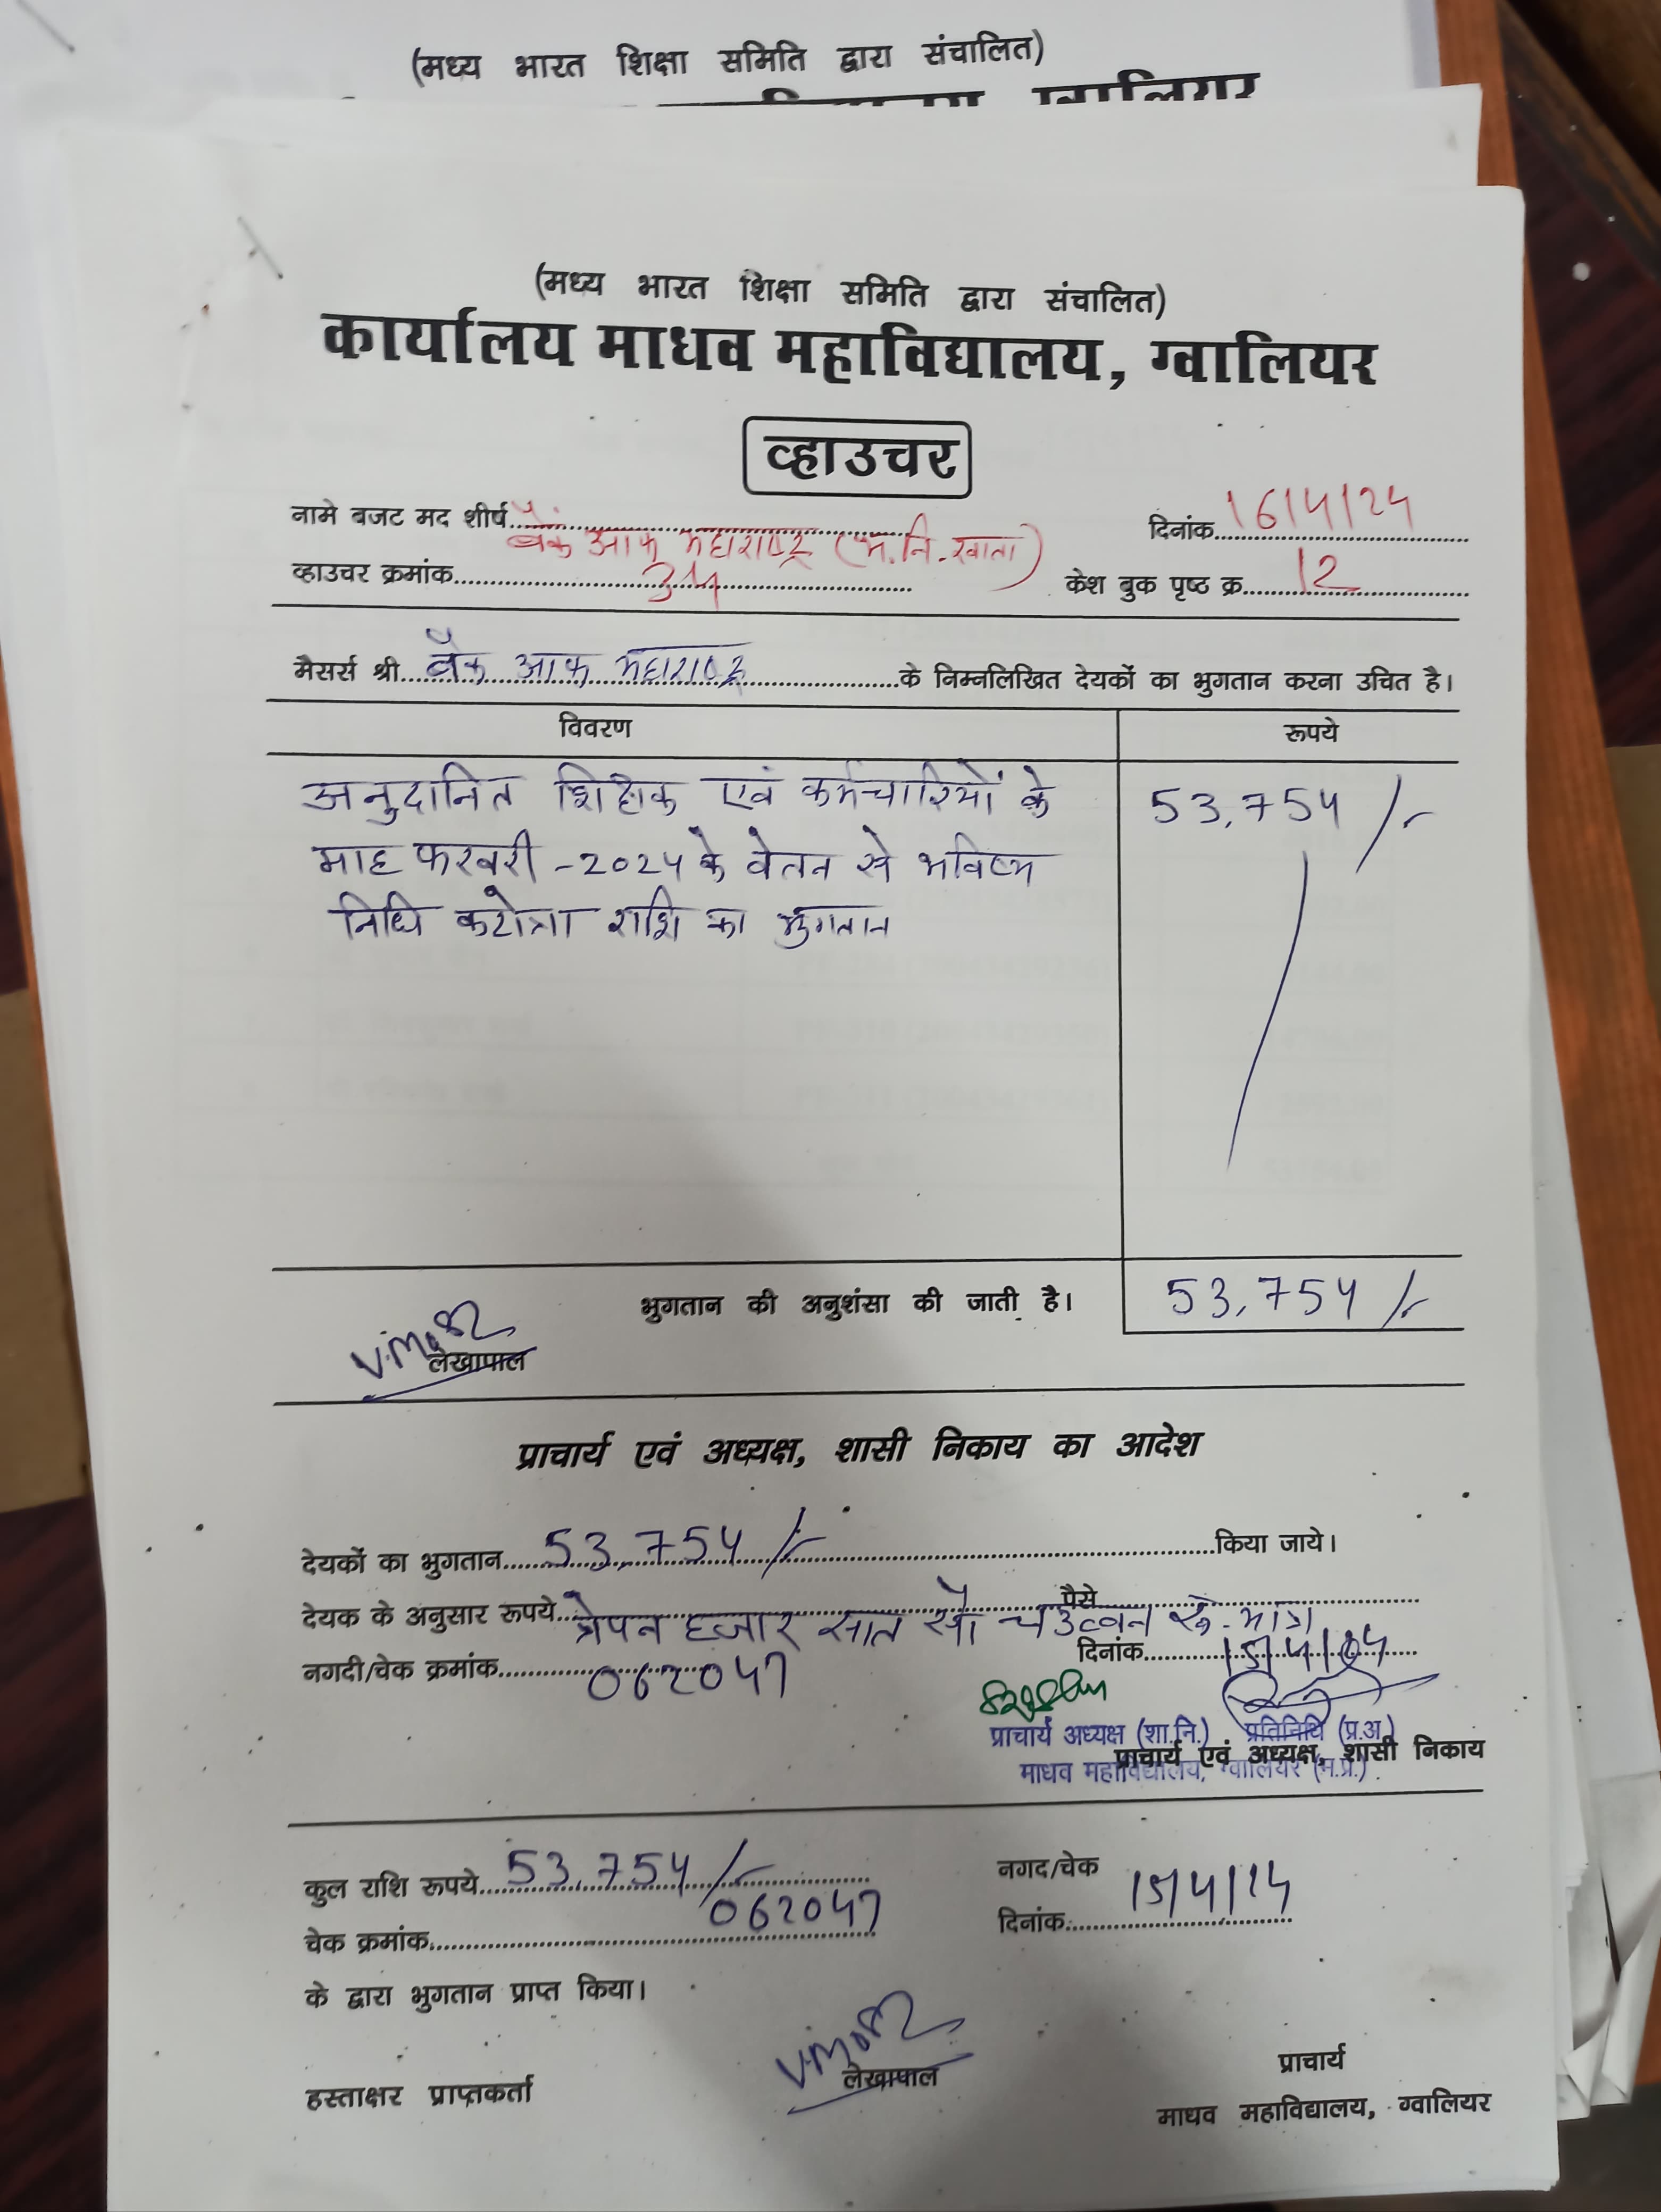 (मध्य भारत शिक्षा समिति द्वारा संचालित)
(मध्य भारत शिक्षा समिति द्वारा संचालित)
कार्यालय माधव महाविद्यालय, ग्वालियर
व्हाउचर
नामे बजट मद शीर्ष बैंक आफ महाराष्ट्र (भ.नि.खाता) दिनांक 16/4/24
व्हाउचर क्रमांक 34 केश बुक पृष्ठ क्र. 12
मैसर्स श्री बैंक आफ महाराष्ट्र के निम्नलिखित देयकों का भुगतान करना उचित है।
विवरण रूपये
अनुदानित शिक्षक एवं कर्मचारियों के 53,754/-
माह फरवरी-2024 के वेतन से भविष्य
निधि कटोत्रा राशि का भुगतान
भुगतान की अनुशंसा की जाती है। 53,754/-
लेखापाल
प्राचार्य एवं अध्यक्ष, शासी निकाय का आदेश
देयकों का भुगतान 53,754/- किया जाये।
देयक के अनुसार रूपये त्रेपन हजार सात सौ चउव्वन रू. मात्र पैसे
नगदी/चेक क्रमांक 062047 दिनांक
प्राचार्य अध्यक्ष (शा.नि.) प्रतिनिधि (प्र.अ.)
प्राचार्य एवं अध्यक्ष, शासी निकाय
माधव महाविद्यालय, ग्वालियर (म.प्र.)
कुल राशि रूपये 53,754/- नगद/चेक
चेक क्रमांक 062047 दिनांक 15/4/24
के द्वारा भुगतान प्राप्त किया।
हस्ताक्षर प्राप्तकर्ता लेखापाल प्राचार्य
माधव महाविद्यालय, ग्वालियर